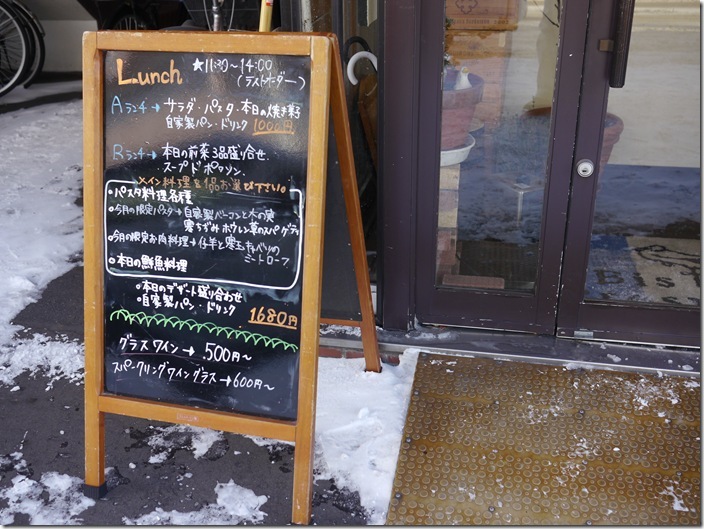 Lunch ★11:30〜14:00
(ラストオーダー)
Aランチ→ サラダ・パスタ・本日の焼き菓子
自家製パン・ドリンク 1000円
Bランチ→ 本日の前菜3品盛り合せ
スープドポワソン
メイン料理1品お選び下さい。
●パスタ料理各種
●今月の限定パスタ→自家製ベーコンと木の実
寒ちぢみホウレン草のスパゲティ
●今月の限定お肉料理→仔羊と寒玉キャベツの
ミートローフ
●本日の鮮魚料理
●本日のデザート盛り合わせ
●自家製パン・ドリンク
1680円
グラスワイン→500円〜
スパークリングワイングラス→600円〜